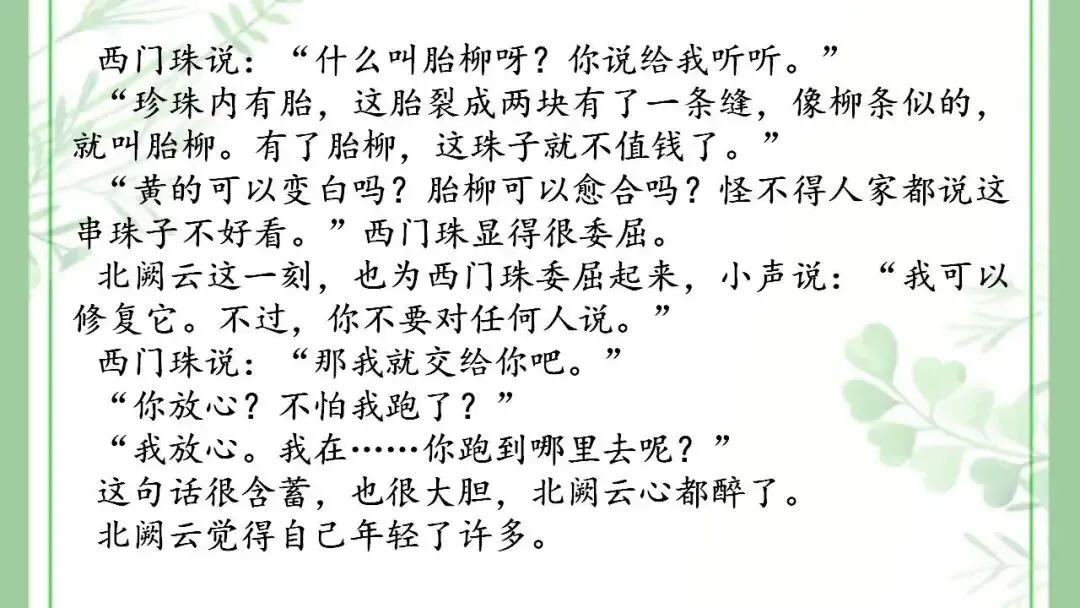 西门珠说：“什么叫胎柳呀？你说给我听听。”
“珍珠内有胎，这胎裂成两块有了一条缝，像柳条似的，
就叫胎柳。有了胎柳，这珠子就不值钱了。”
“黄的可以变白吗？胎柳可以愈合吗？怪不得人家都说这
串珠子不好看。”西门珠显得很委屈。
北阙云这一刻，也为西门珠委屈起来，小声说：“我可以
修复它。不过，你不要对任何人说。”
西门珠说：“那我就交给你吧。”
“你放心？不怕我跑了？”
“我放心。我在……你跑到哪里去呢？”
这句话很含蓄，也很大胆，北阙云心都醉了。
北阙云觉得自己年轻了许多。